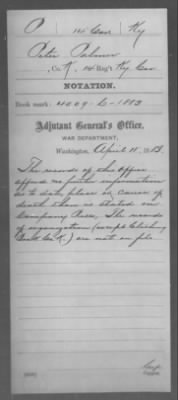 P 14 Cav Ky
Peter Palmer
Co. K, 14 Reg't Ky Cav
NOTATION.
Book mark:
Adjutant General's Office,
WAR DEPARTMENT,
Washington, April 11, 1883.
The records of this office
afford no further information
as to date, place or cause of
death than is stated on
Company Rolls. The records
of organization (except Clothing
Book Co K.) are not on file.
Copyist.